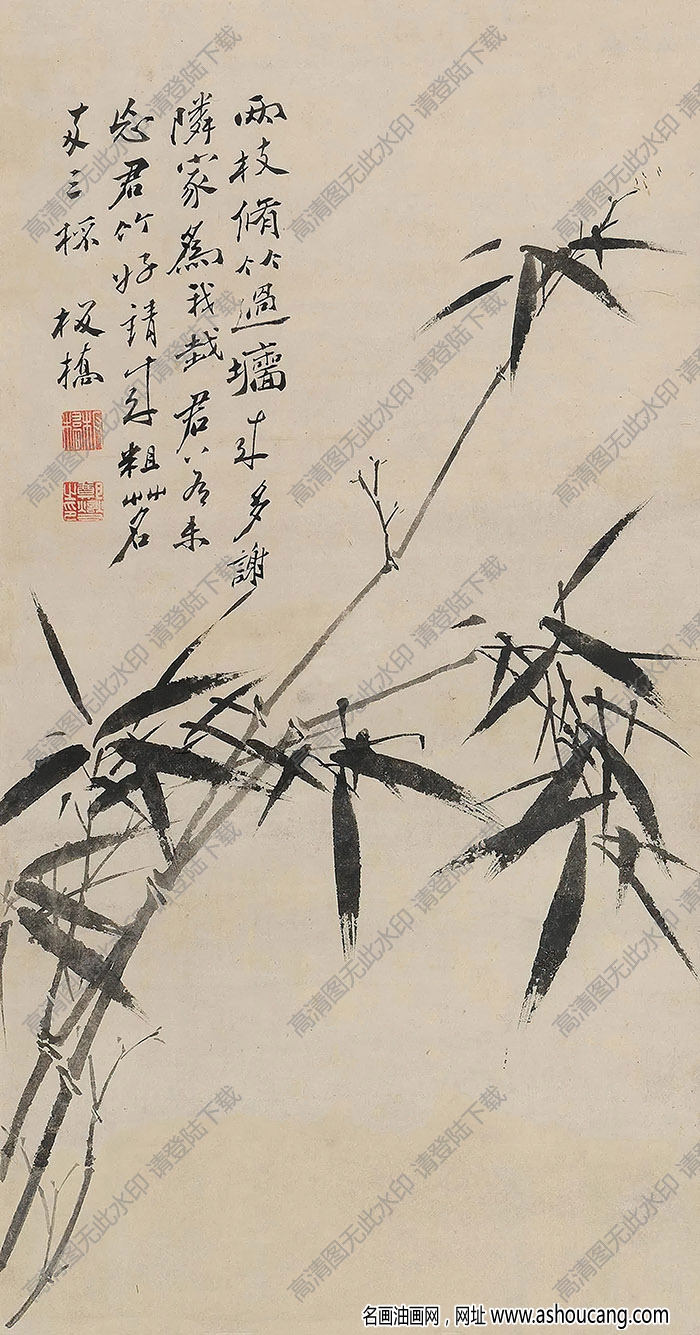 兩枝脩竹過墻来多謝
隣家為我栽君未
忘君竹好請来粗茗
两三杯 板橋
鄭燮之印
高清图无此水印 请登陆下载
名画油画网，网址 www.ashoucang.com